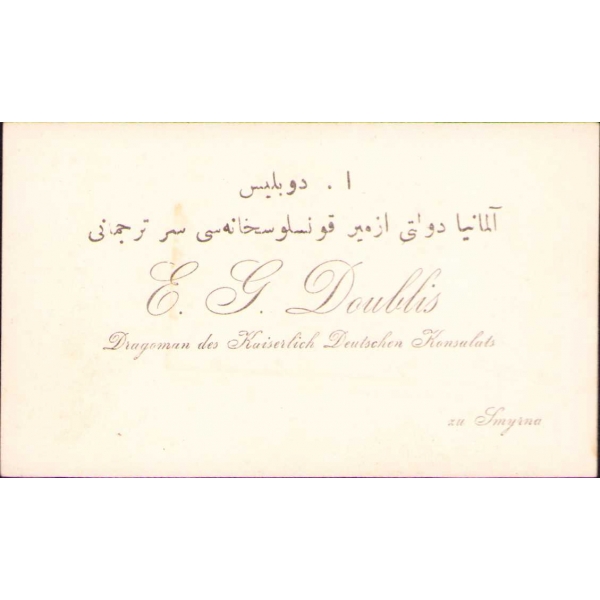 ا . دوبليس
آلمانيا دولتى ازمير قونسلوسخانه‌سى سر ترجمانى
E. G. Doublis
Dragoman des Kaiserlich Deutschen Konsulats
zu Smyrna